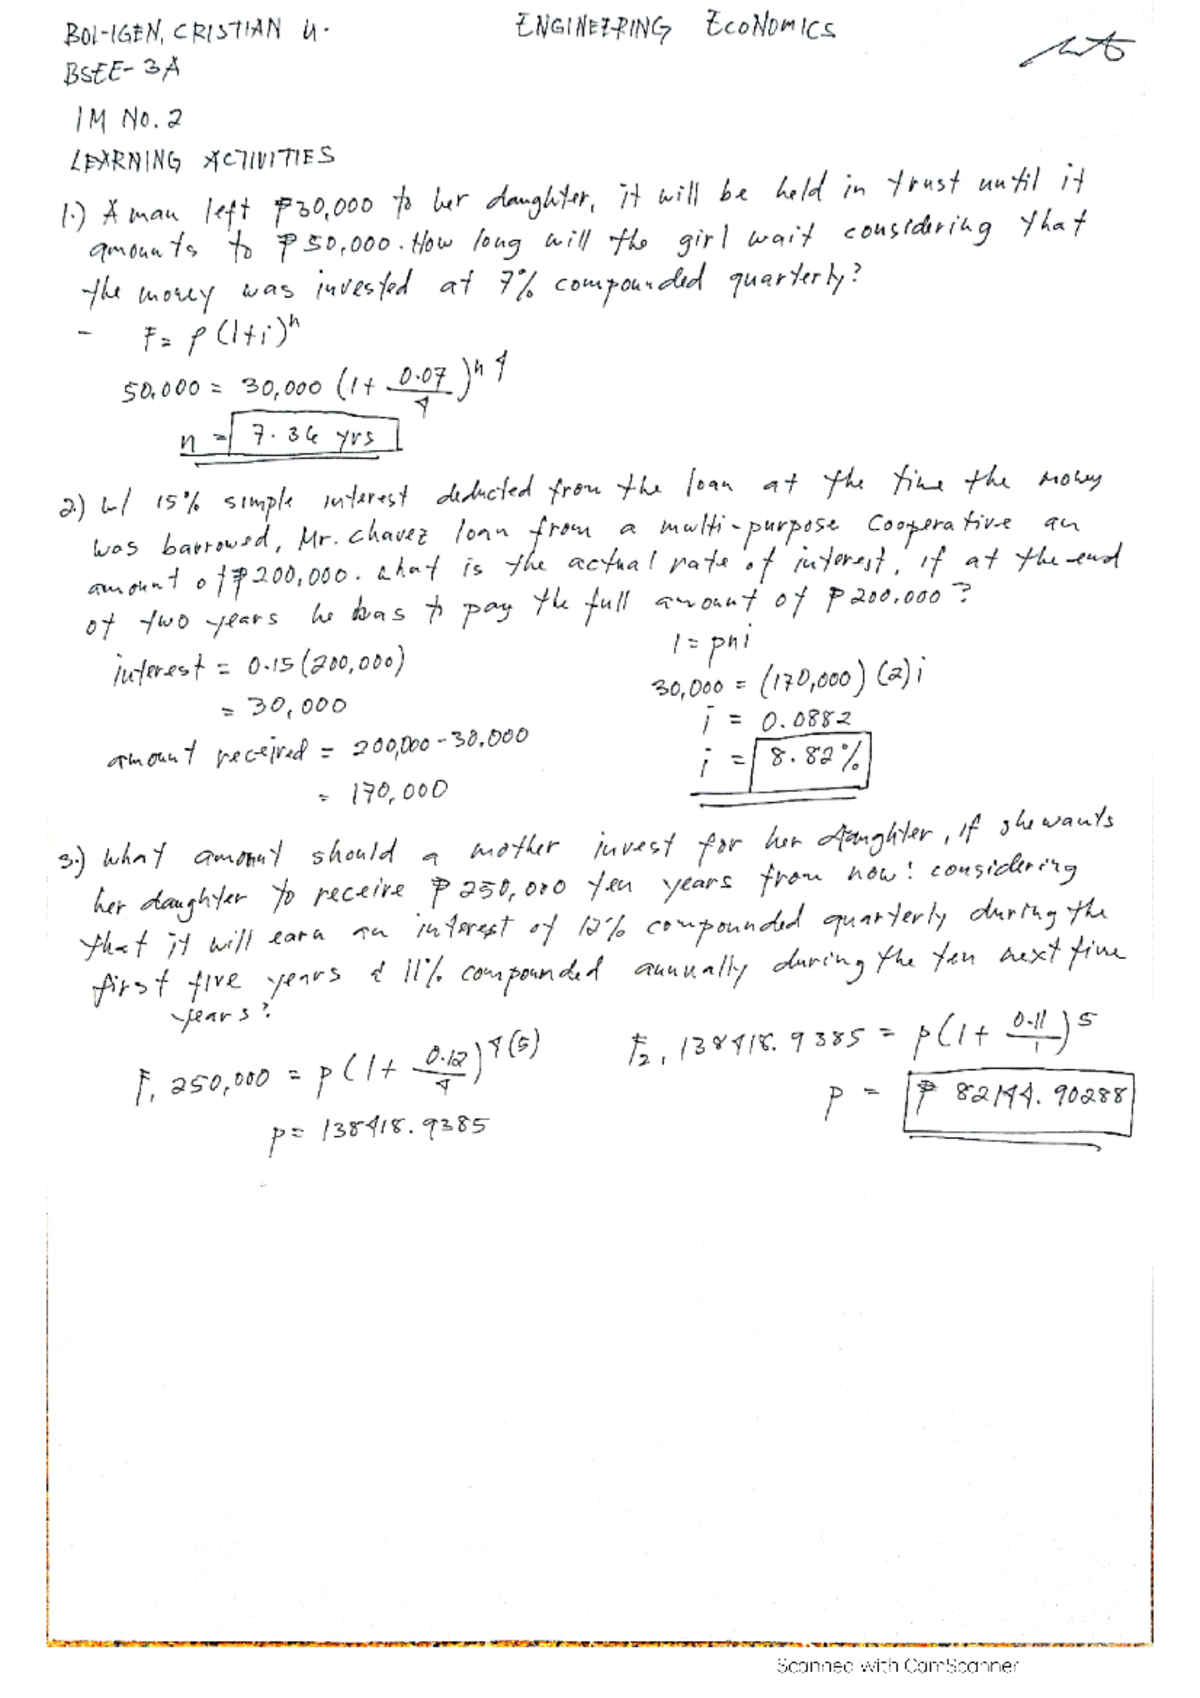 BOL-IGEN, CRISTIAN U. ENGINEERING ECONOMICS
BSEE-3A
IM NO. 2
LEARNING ACTIVITIES
1.) A man left ₱30,000 to her daughter, it will be held in trust until it
amounts to ₱50,000. How long will the girl wait considering that
the money was invested at 7% compounded quarterly?
- F = P(1+i)^n
50,000 = 30,000 (1+ 0.07/4)^n4
n = 7.36 yrs
2.) w/ 15% simple interest deducted from the loan at the time the money
was barrowed, Mr. Chavez loan from a multi-purpose Cooperative an
amount of ₱200,000. what is the actual rate of interest, if at the end
of two years he has to pay the full amount of ₱200,000?
interest = 0.15(200,000)
= 30,000
amount received = 200,000-30,000
= 170,000
I = pni
30,000 = (170,000)(2)i
i = 0.0882
i = 8.82%
3.) What amount should a mother invest for her daughter, if she wants
her daughter to receive ₱250,000 ten years from now: considering
that it will earn an interest of 12% compounded quarterly during the
first five years & 11% compounded annually during the ten next five
years?
F, 250,000 = p(1+ 0.12/4)^4(5)
p = 138418.9385
F2, 138418.9385 = p(1+ 0.11/1)^5
p = ₱ 82144.90288
Scanned with CamScanner